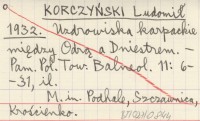 KORCZYŃSKI Ludomił
1932. Uzdrowiska karpackie
między Odrą a Dniestrem. –
Pam. Pol. Tow. Balneol. 11: 6–
–31, il.
M. in. Podhale, Szczawnica,
Krościenko.